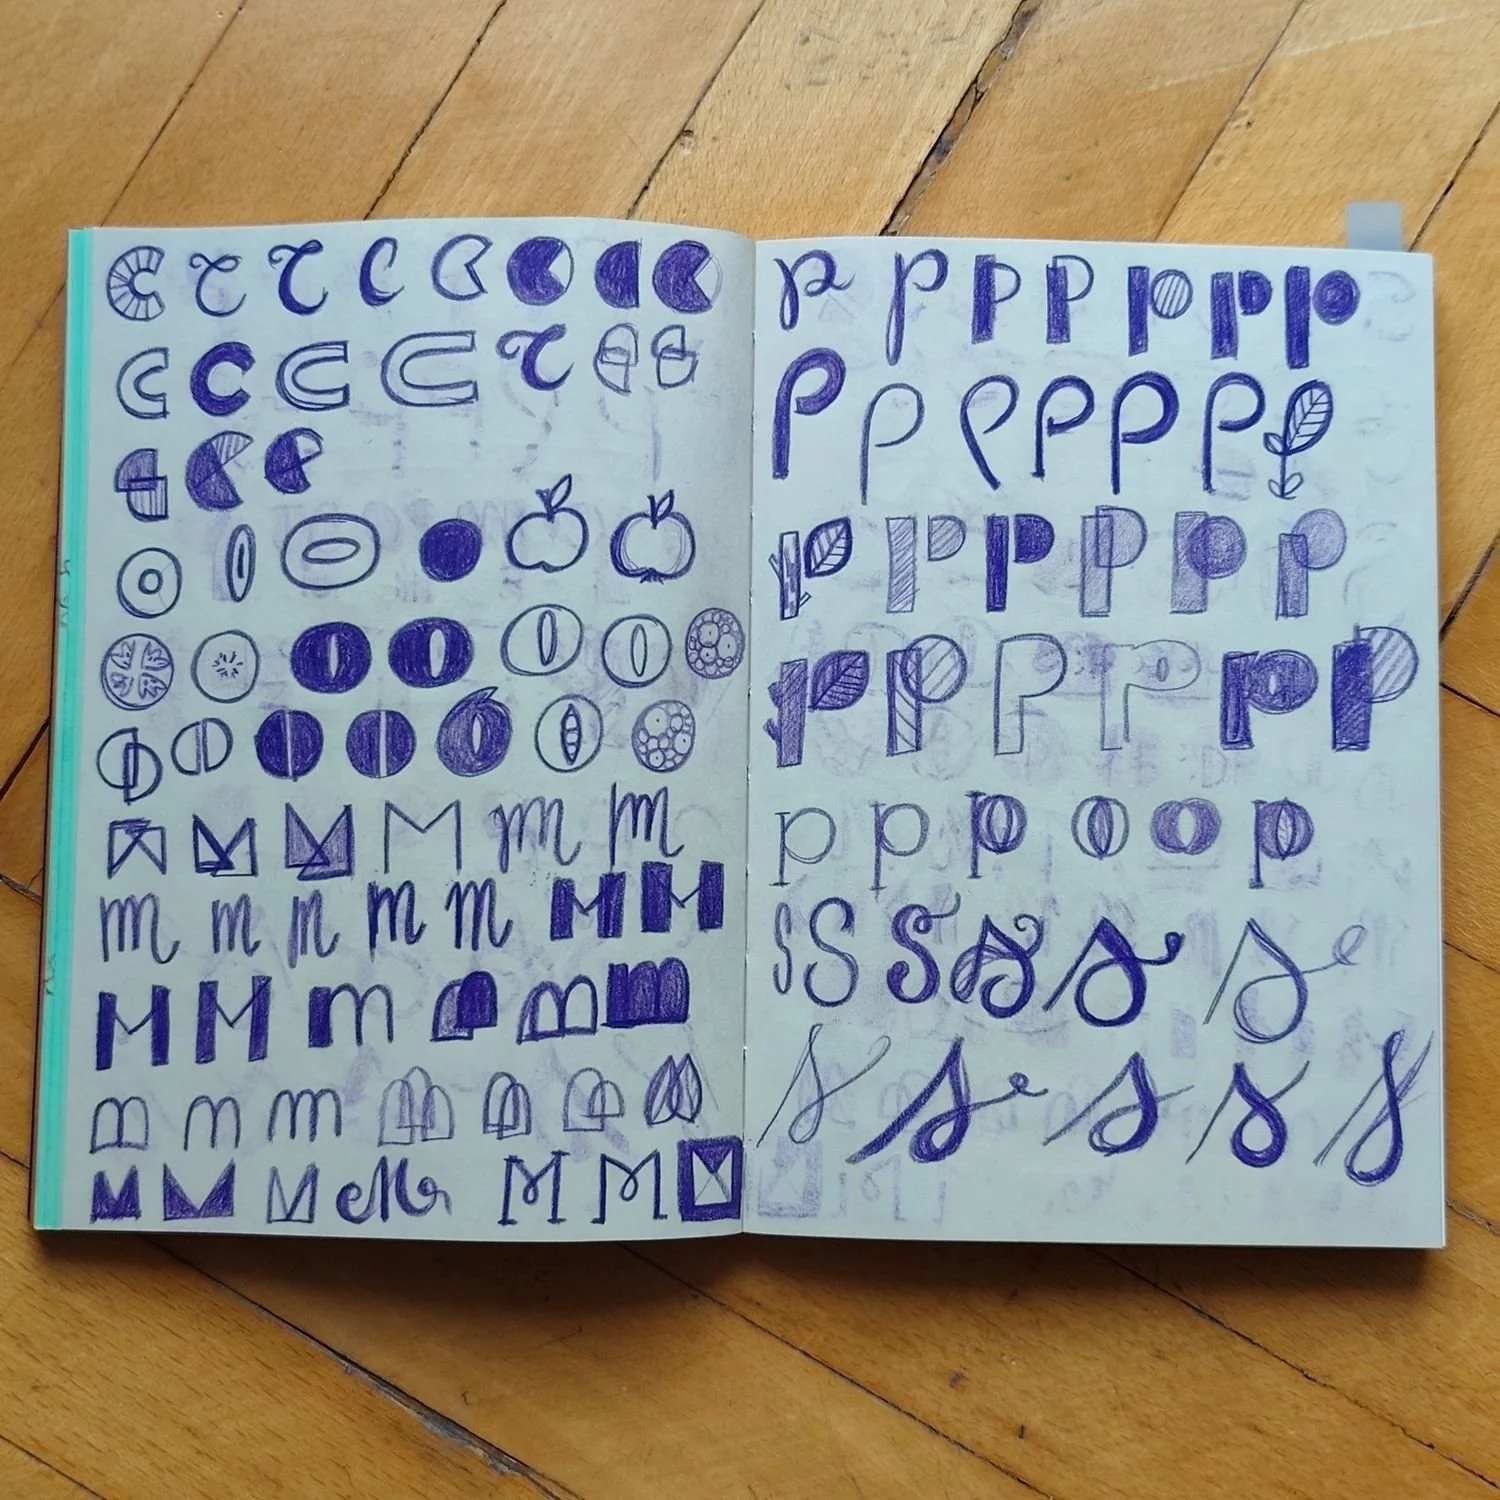 C C C C C C C C
C C C C C C C
C C C
O O O O O O
O O O O O O O
O O O O O O O
M M M M m m
m m m m m M M
M M m m m m
m m m m m m m
M M M M M M M
p p P P P P P
P P P P P P P
P P P P P P
P P P P P P
p p p o o p
S S S S S S
S S S S S